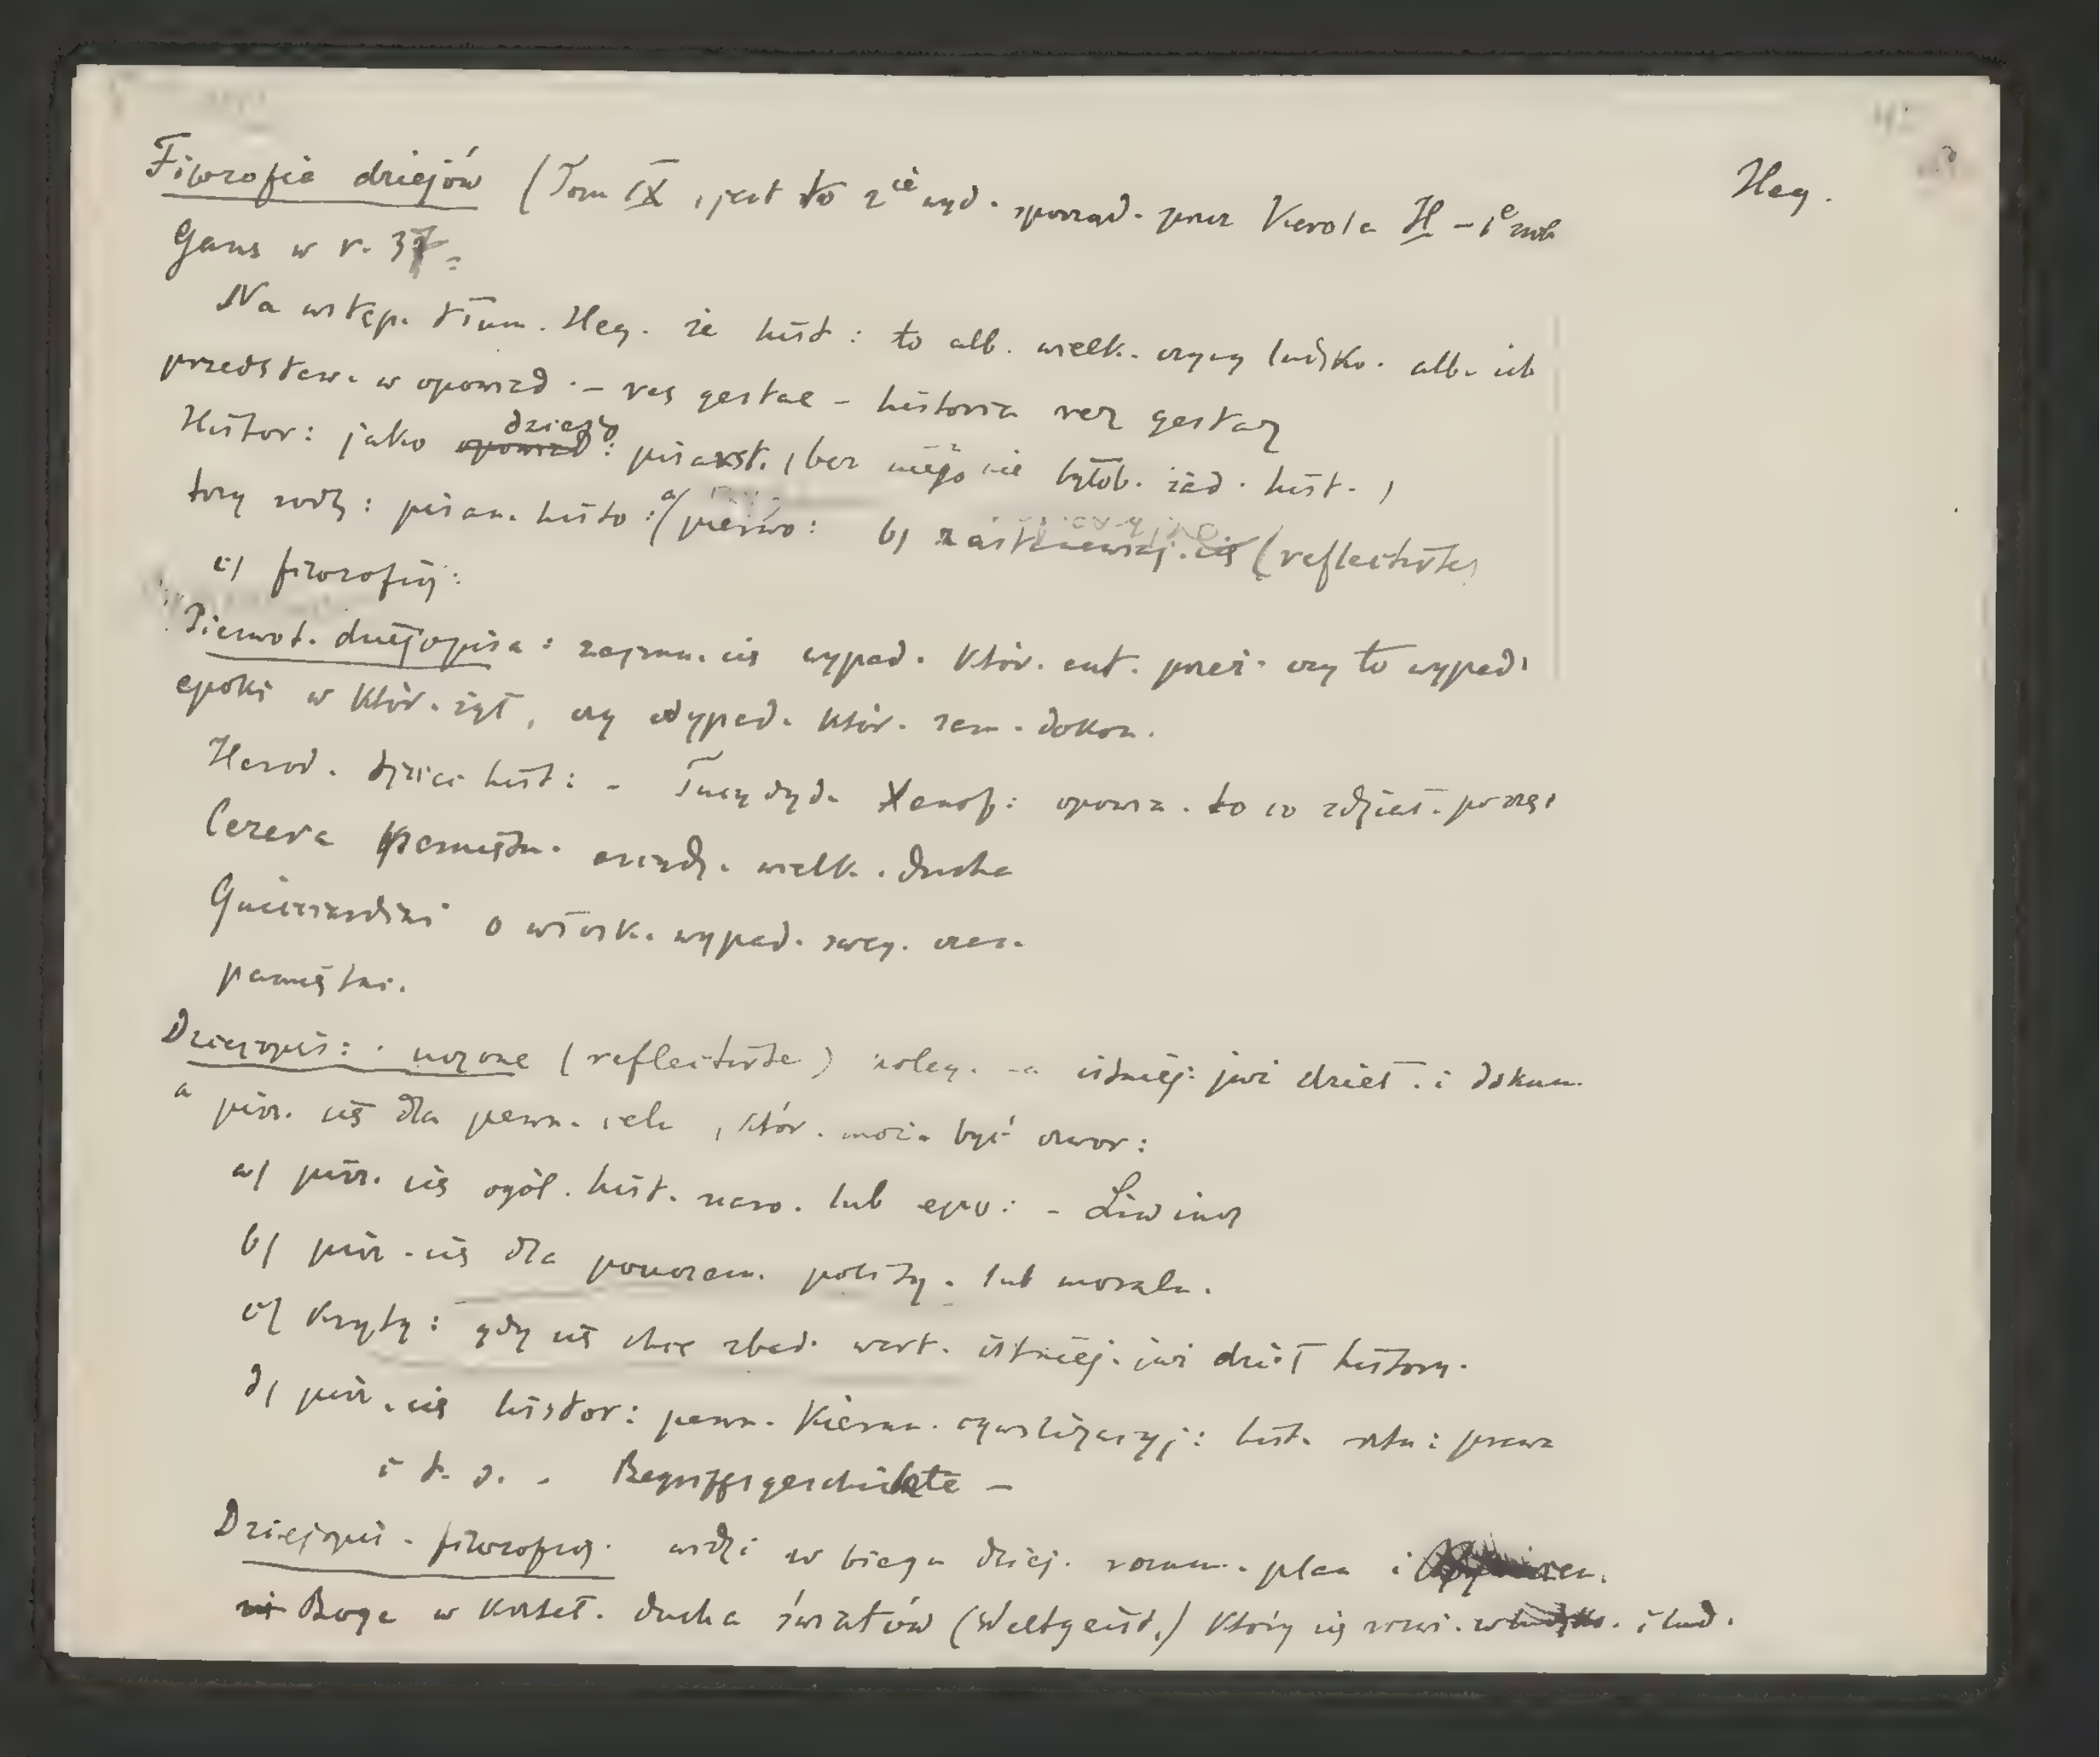 Heg.
Filozofia dziejów (Tom IX, jest to 2gie wyd. sporząd. przez Karola H - 1e zrob
Gans w r. 37.
Na wstęp. tłum. Heg. że hist: to alb. wielk. czyny ludzko. alb. ich
przedstaw. w opowiad. - res gestae - historia rerz gestarz
Histor: jako dziejo: pisarst. (bez niego nie byłob. żad. hist.)
trzy rodz: pisan. histo: a) pierwo: b) (reflectirte)
c) filozofij:
Pierwot. dziejopisa: zajmu. się wypad. któr. aut. przeż. czy to wypad.
epoki w któr. żył, czy wypad. któr. sam. dokon.
Herod. ojciec hist: - Tucydyd. Xenof: opowia. to co
Cezara pamiętn. wielk. ducha
Guicciardini o włosk. wypad. swey. czas.
pamiętni.
Dziejopis: uczone (reflectirte) poleg. na istniej: już dzieł. i dokum.
a pisz. się dla pewn. celu, któr. moż. być czwor:
a) pisz. się ogól. hist. naro. lub epo: - Liwiusz
b) pisz. się dla pouczen. polity. lub moraln.
c) kryty: gdy się chce zbad. wart. istniej. już dzieł history.
d) pisz. się histor: pewn. kierun. cywilizacyj: hist. sztu: prawa
i t. d. . Begriffsgeschichte -
Dziejopis. filozofij. widzi w biegu dziej. rozum. plan i
Boga w kształ. ducha światów (Weltgeist.) który się rozwi. i lud.